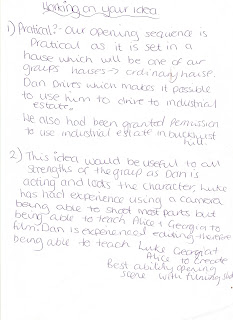 Working on your idea
1) Pratical?- Our opening sequence is
Pratical as it is set in a
house which will be one of our
groups houses → ordinary house.
Dan Drives which makes it possible
to use him to drive to industrial
estate.
We also had been granted Permission
to use industrial estate in buckhurst
hill.
2) This idea would be useful to all
strengths of the group as Dan is
acting and looks the character, Luke
has had experience using a camera
being able to shoot most parts but
being able to teach Alice + Georgia to
film. Dan is experienced editing therefore
being able to teach Luke Georgia +
Alice to create
Best ability opening
scene with